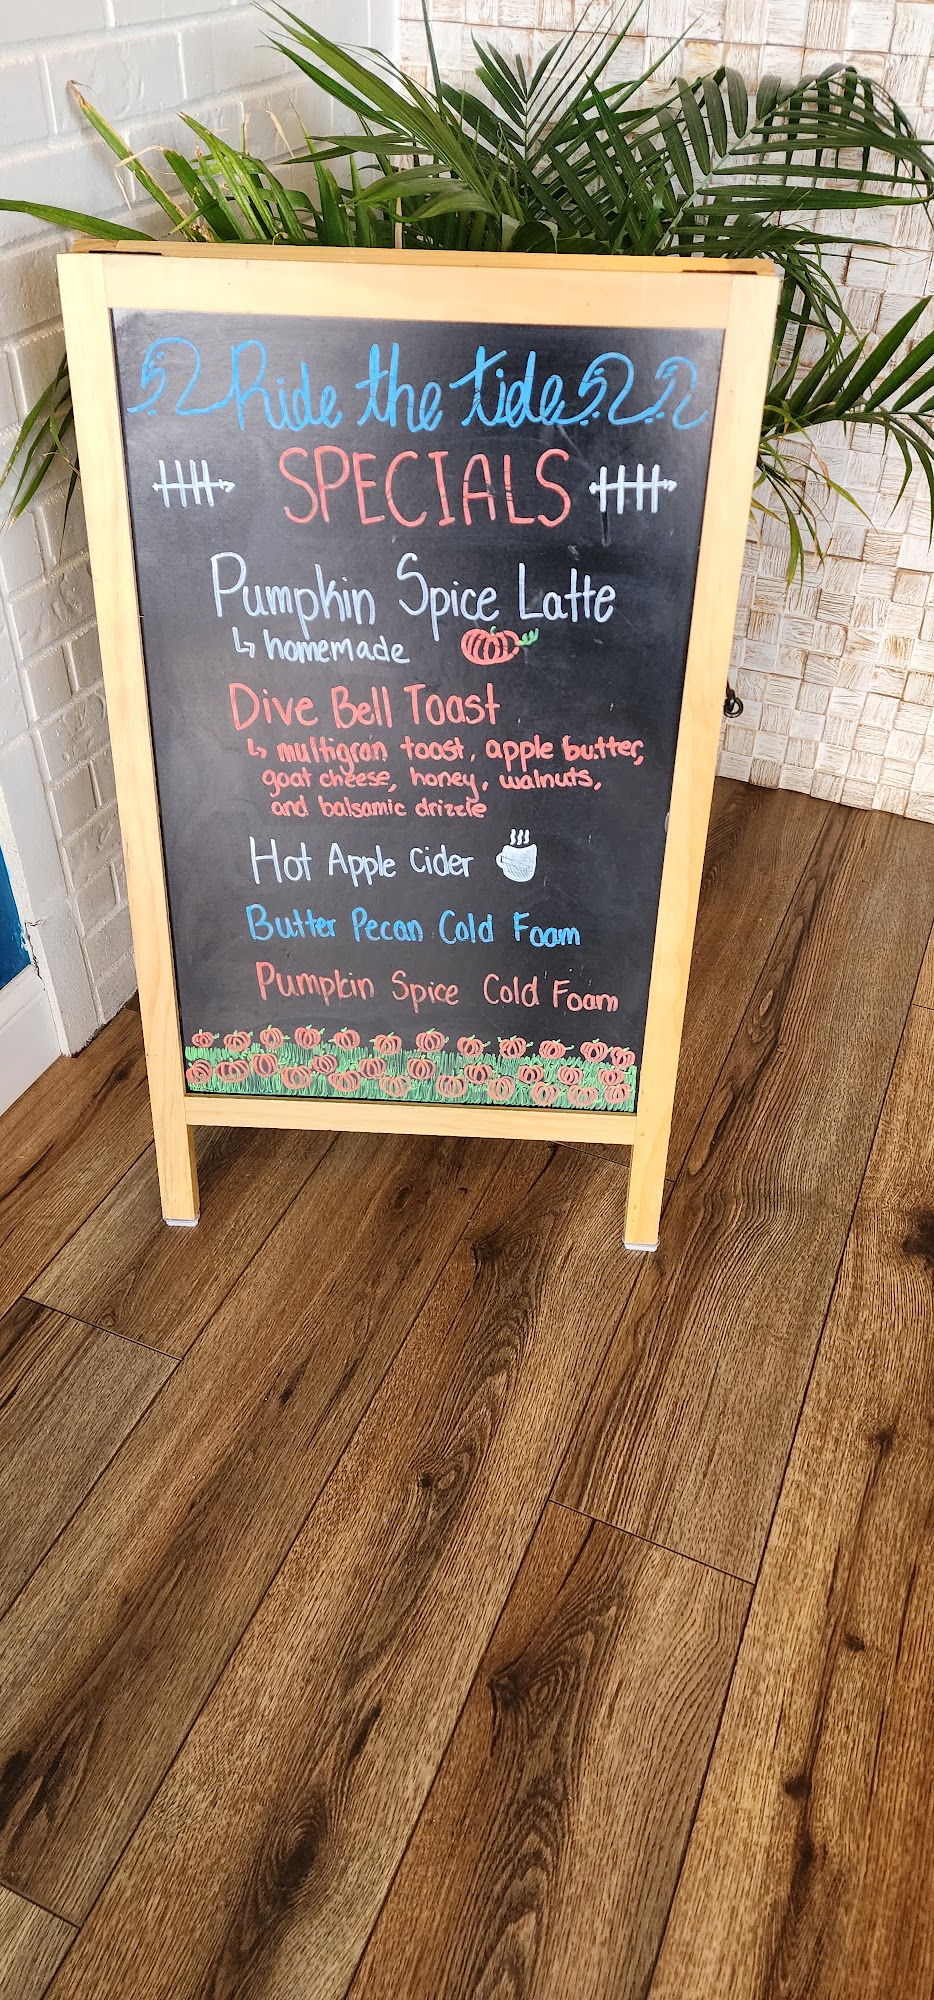 Ride the tide
SPECIALS
Pumpkin Spice Latte
↳ homemade
Dive Bell Toast
↳ multigran toast, apple butter,
goat cheese, honey, walnuts,
and balsamic drizzle
Hot Apple Cider
Butter Pecan Cold Foam
Pumpkin Spice Cold Foam